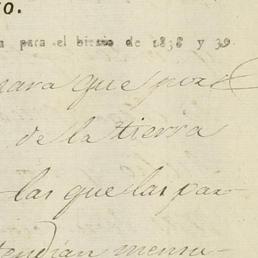 o.
para el bienio de 1838 y 39
para que por
de la tierra
las que las par-
tendrian mensu-